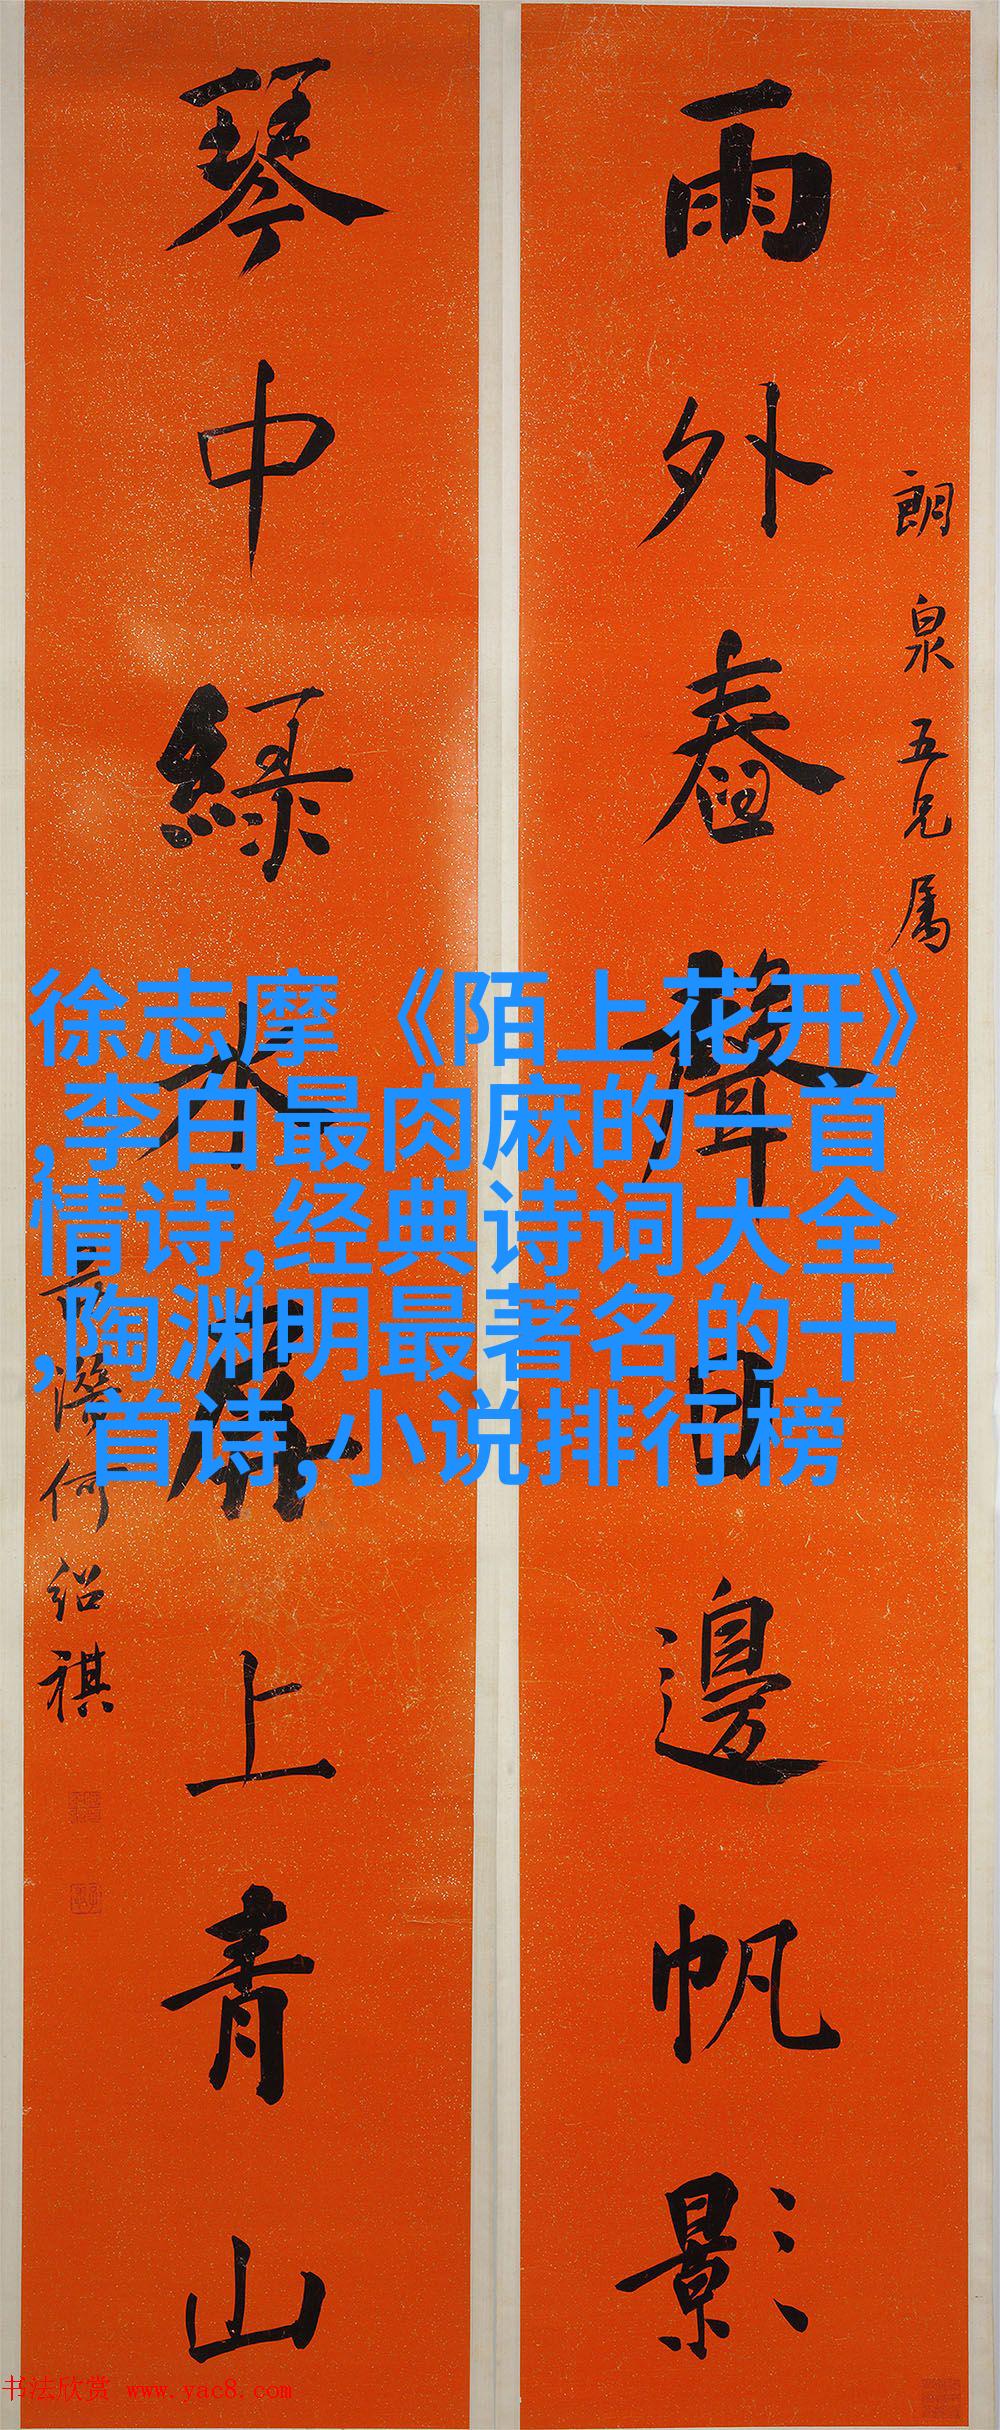 朗泉五兄属
雨外舂聲日邊帆影
琴中緑水屏上青山
何紹祺
徐志摩《陌上花开》
,李白最肉麻的一首
情诗,经典诗词大全
,陶渊明最著名的十
首诗,小说排行榜
书法欣赏 www.yac8.com